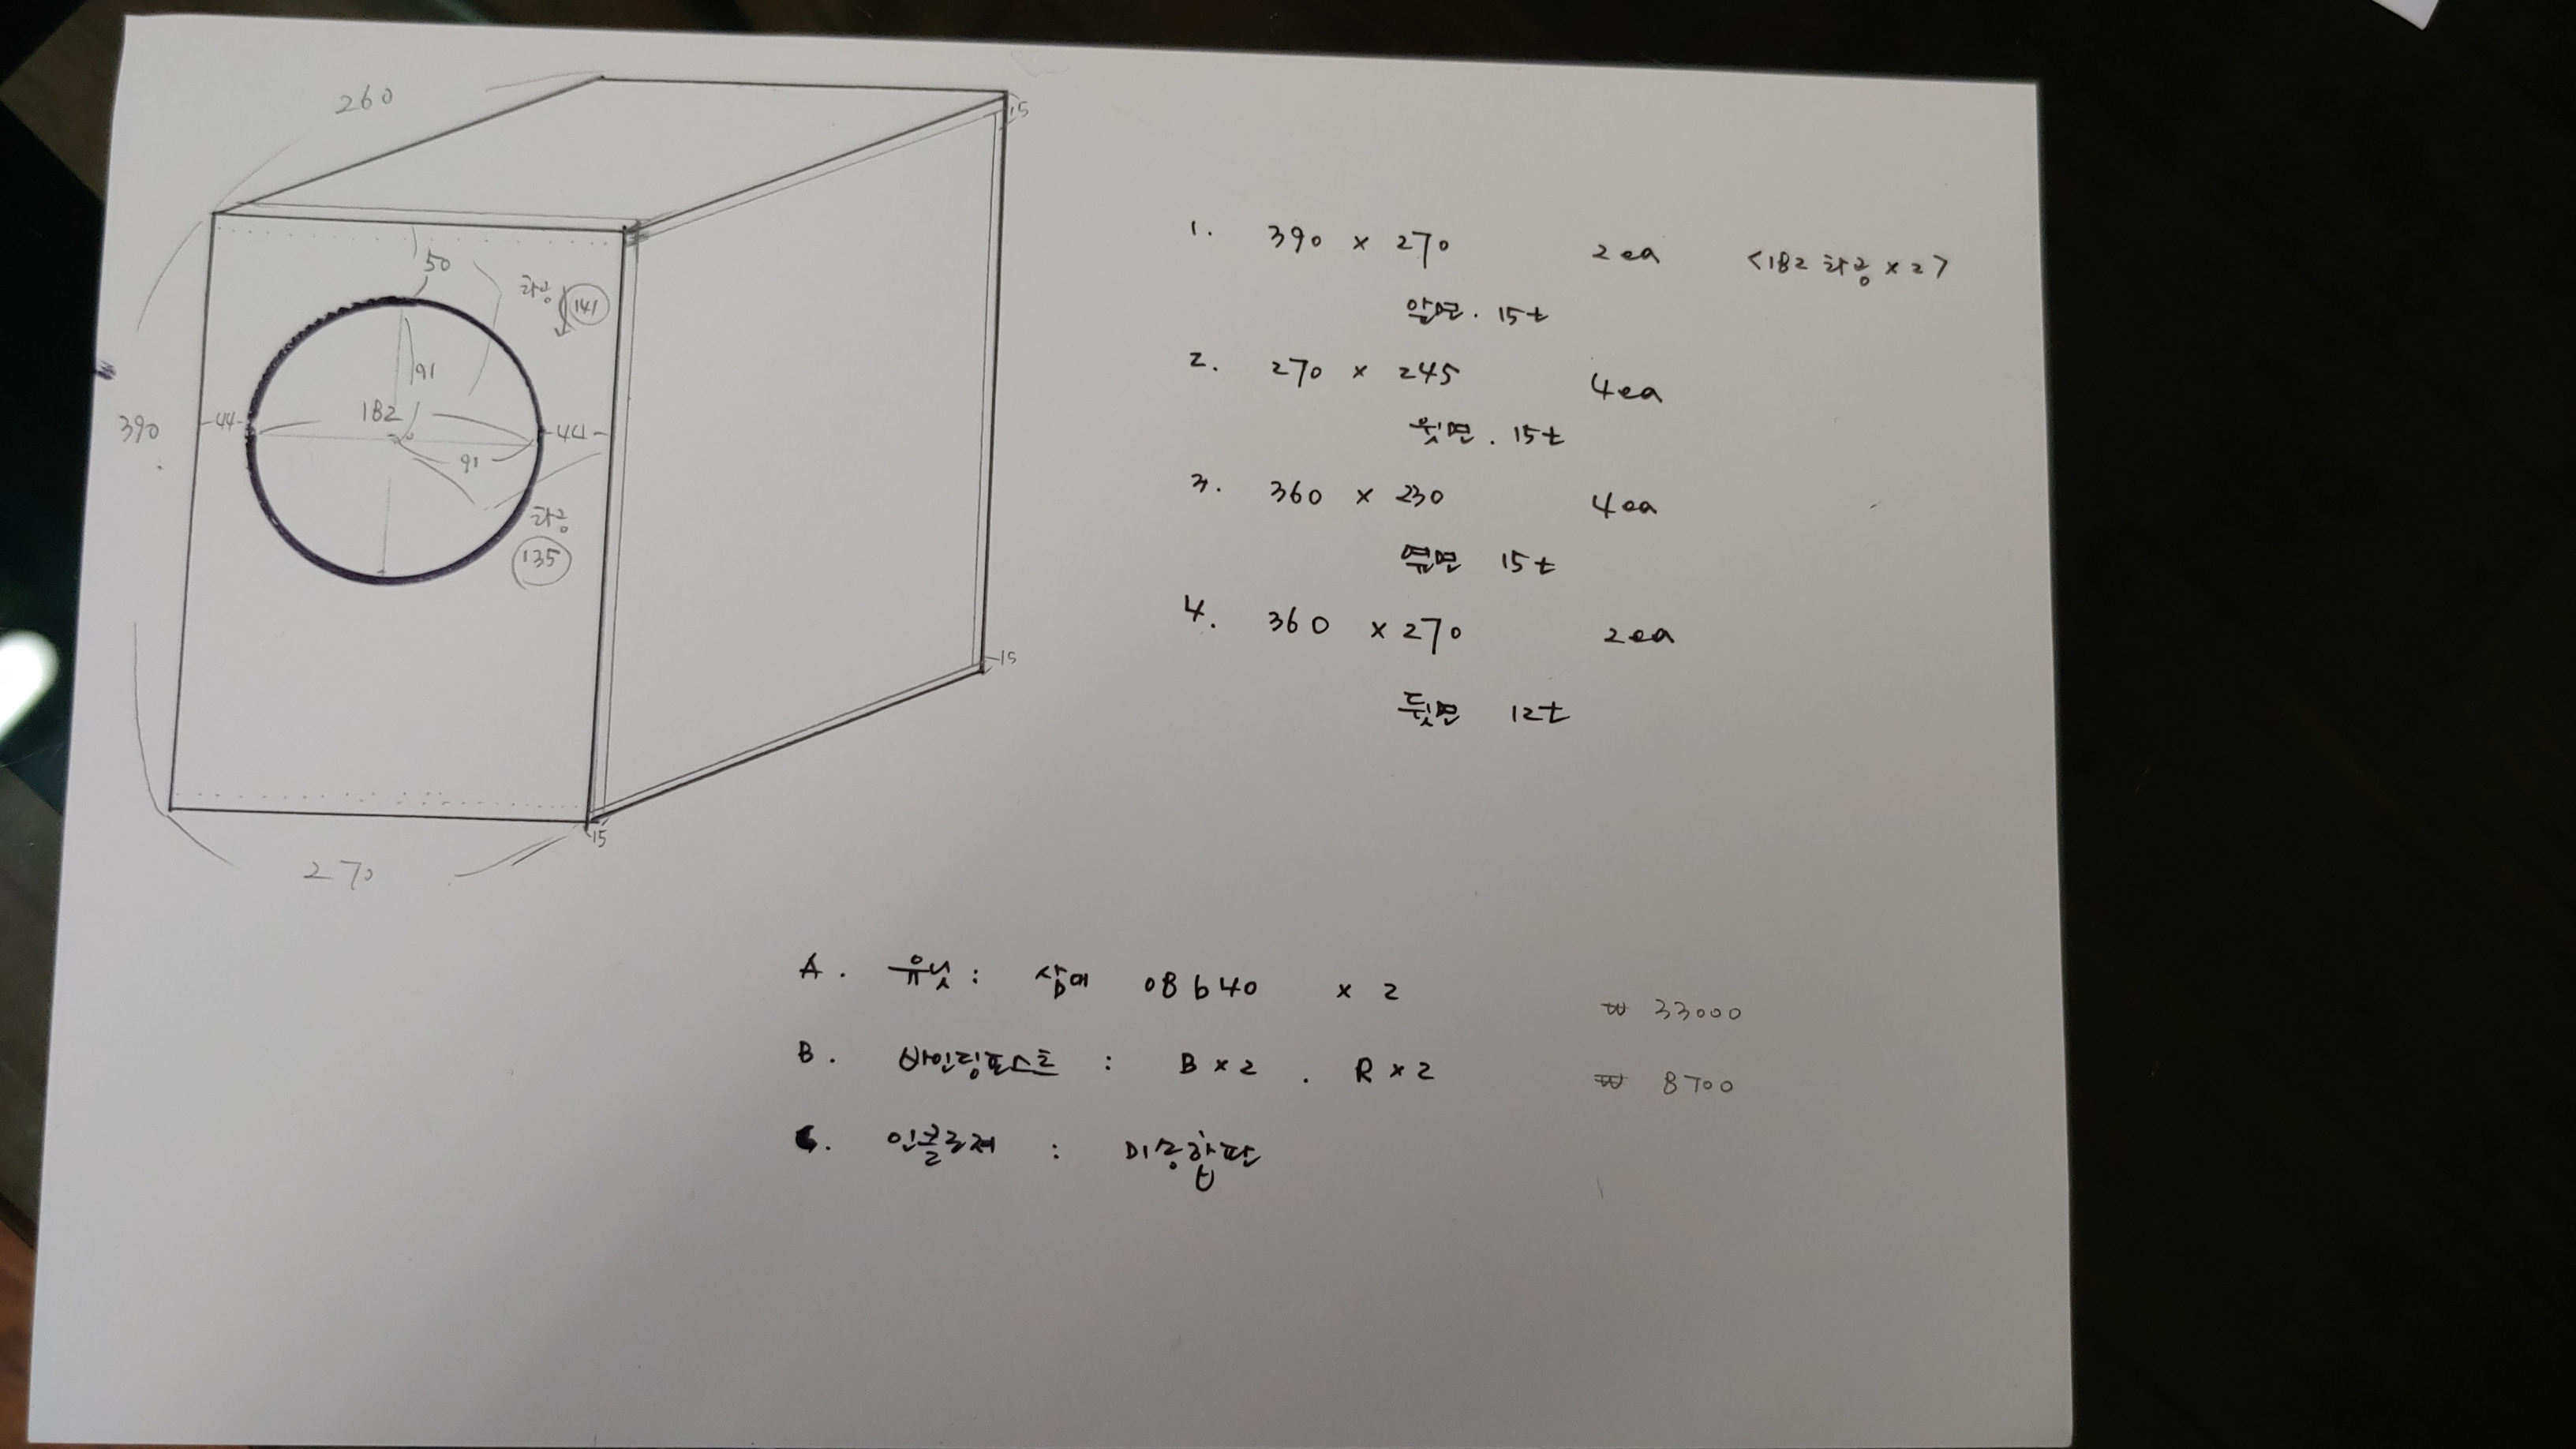 260
15
50
타공 141
91
182
390
44
44
91
타공
135
15
15
270
1. 390 x 270 2ea <182 타공 x 2>
앞면. 15t
2. 270 x 245 4ea
윗면. 15t
3. 360 x 230 4ea
옆면 15t
4. 360 x 270 2ea
뒷면 12t
A. 유닛 : 삼미 08b40 x 2 ₩ 33000
B. 바인딩포스트 : B x 2 . R x 2 ₩ 8700
C. 인클로져 : 미송합판